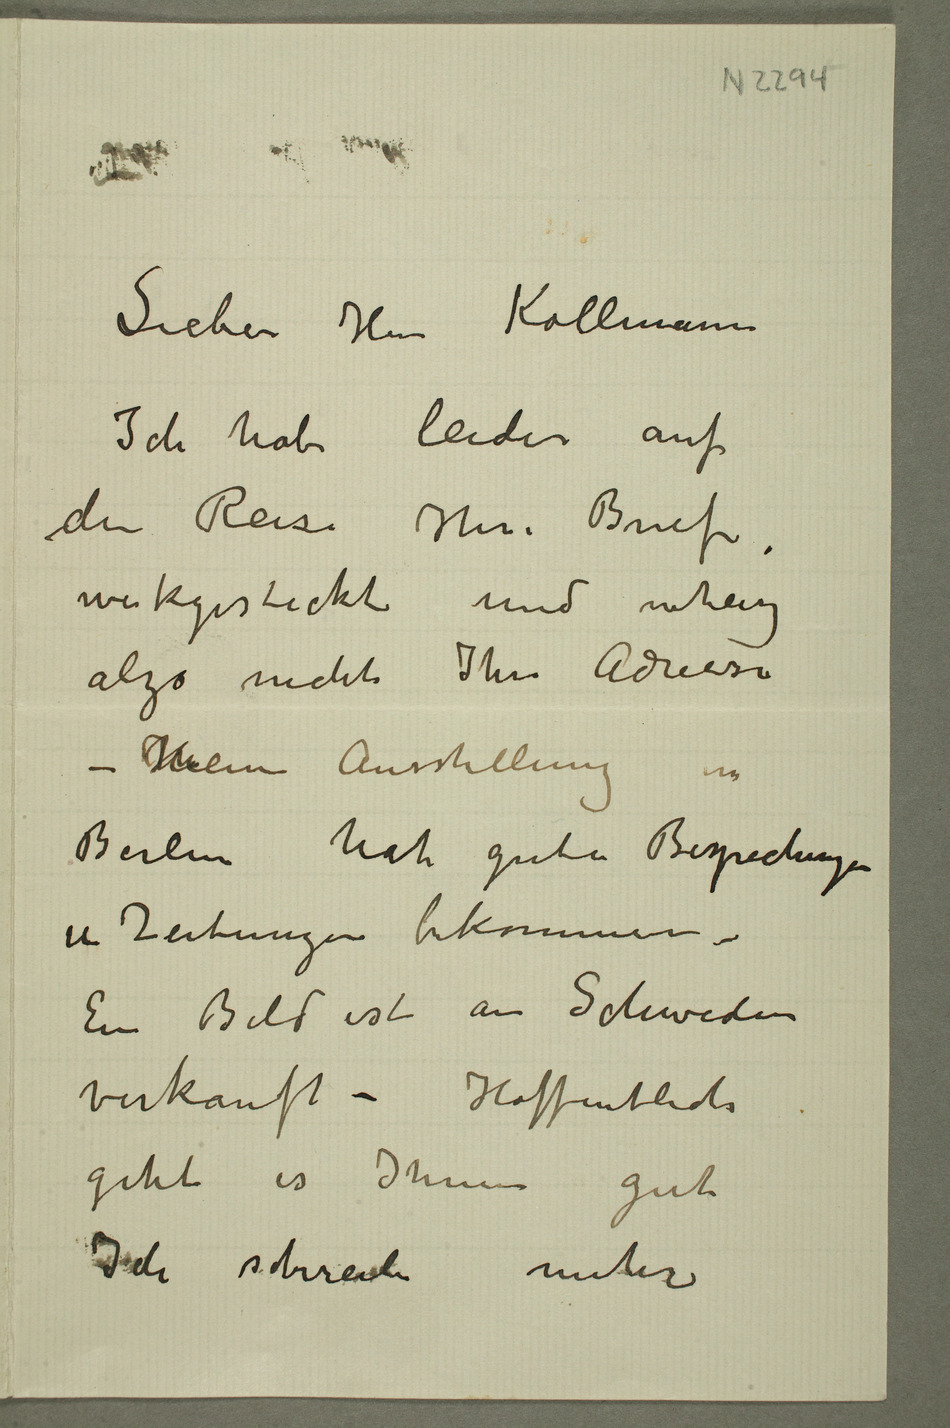 N 2294
Lieber Herr Kollmann
Ich habe leider auf
der Reise Ihre Briefe,
wekgesteckt und
alzo nicht Ihre Adresse
– Meine Ausstellung in
Berlin hat guten Besprechungen
in Zeitungen bekommen –
Ein Bild ist an Schweden
verkauft – Hoffentlich
geht es Ihnen gut
Ich schreibe mehr